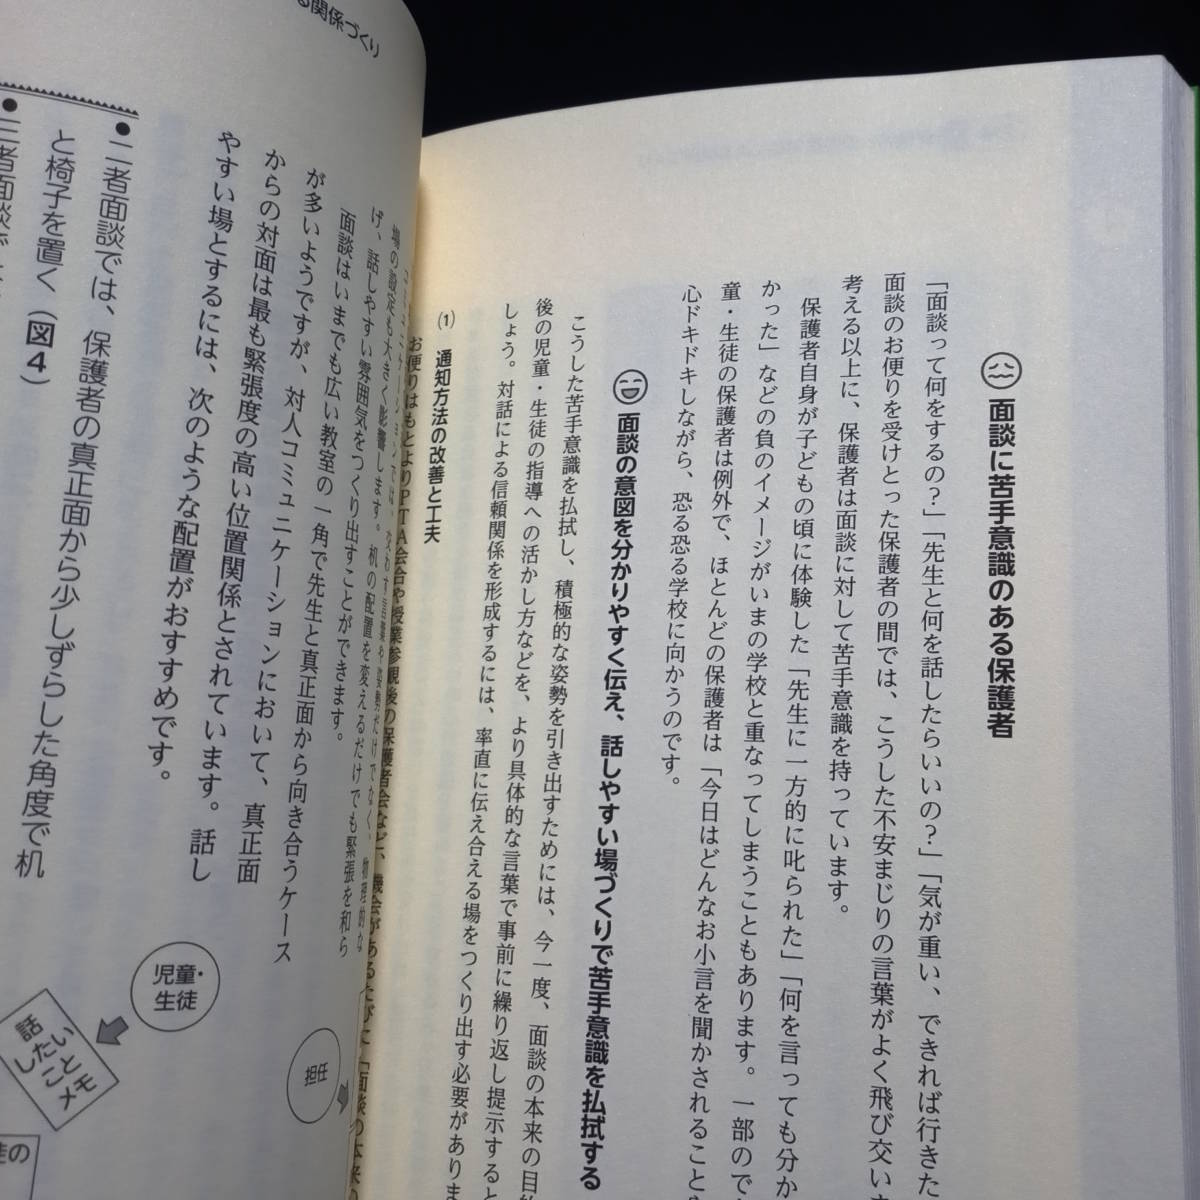 面談に苦手意識のある保護者
「面談って何をするの？」「先生と何を話したらいいの？」「気が重い、できれば行きた
面談のお便りを受けとった保護者の間では、こうした不安まじりの言葉がよく飛び交いま
考える以上に、保護者は面談に対して苦手意識を持っています。
保護者自身が子どもの頃に体験した「先生に一方的に叱られた」「何を言っても分か
かった」などの負のイメージがいまの学校と重なってしまうこともあります。一部ので
童・生徒の保護者は例外で、ほとんどの保護者は「今日はどんなお小言を聞かされること
心ドキドキしながら、恐る恐る学校に向かうのです。
面談の意図を分かりやすく伝え、話しやすい場づくりで苦手意識を払拭する
こうした苦手意識を払拭し、積極的な姿勢を引き出すためには、今一度、面談の本来の目的
後の児童・生徒の指導への活かし方などを、より具体的な言葉で事前に繰り返し提示すると
しょう。対話による信頼関係を形成するには、率直に伝え合える場をつくり出す必要がありま
(1) 通知方法の改善と工夫
お便りはもとよりPTA会合や授業参観後の保護者会など、機会があるたびに「面談の本来の
る関係づくり
コミュニケーションでは、交わす言葉や姿勢だけでなく、物理的な
場の設定も大きく影響します。机の配置を変えるだけでも緊張を和ら
げ、話しやすい雰囲気をつくり出すことができます。
面談はいまでも広い教室の一角で先生と真正面から向き合うケース
が多いようですが、対人コミュニケーションにおいて、真正面
からの対面は最も緊張度の高い位置関係とされています。話し
やすい場とするには、次のような配置がおすすめです。
●二者面談では、保護者の真正面から少しずらした角度で机
と椅子を置く（図4）
●三者面談で
児童・
生徒
担任
話
したい
こと
メモ
徒の